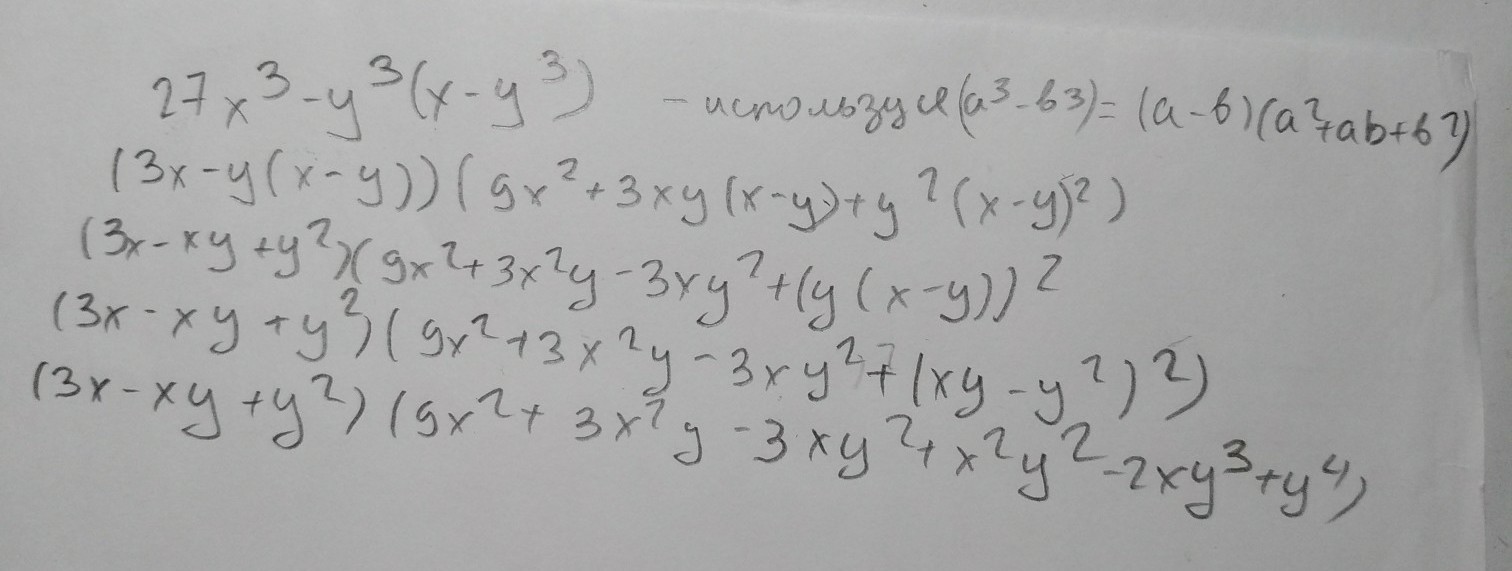 27x³-y³(x-y³) - используя (a³-b3)= (a-b)(a²+ab+b²)
(3x-y(x-y))(9x²+3xy(x-y)+y²(x-y)²)
(3x-xy+y²)(9x²+3x²y-3xy²+(y(x-y))²
(3x-xy+y²)(9x²+3x²y-3xy²+(xy-y²)²)
(3x-xy+y²)(9x²+3x²y-3xy²+x²y²-2xy³+y⁴)